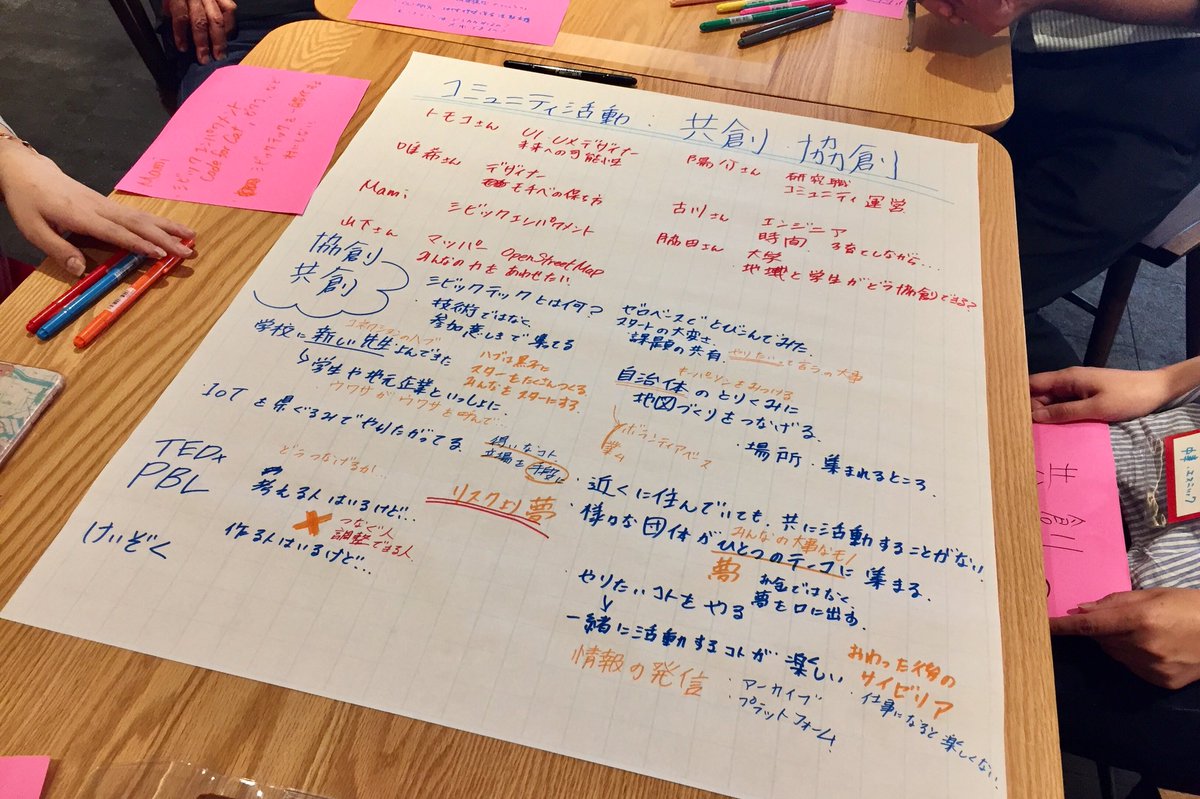 コミュニティ活動：共創 協創
トモコさん UI・UXデザイナー
未来への可能性
唯希さん デザイナー
モチベの保ち方
Mami シビックエンパワメント
山下さん マッパー OpenStreetMap
みんなの力をあわせたい
陽介さん 研究職
コミュニティ運営
古川さん エンジニア
時間 子育てしながら…
脇田さん 大学
地域と学生がどう協創できる?
協創
共創
シビックテックとは何?
技術ではなく
参加意しきで集てる
コネクションのハブ
学校に新しい先生よんできた
ハブは黒子に
スターをたくさんつくる
みんなをスターにする
↳学生や地元企業といっしょに
ウワサがウワサを呼んで…
・IoTを県ぐるみでやりたがってる
得いなコト
立場を
TEDx
PBL
どうつなげるか…
考える人はいるけど…
つなぐ人
調整できる人
作る人はいるけど…
けいぞく
リスクより夢
ゼロベースでとびこんでみた
スタートの大変さ
課題の共有
やりたいって言うの大事
キーパーソンをみつける
自治体のとりくみに
地図づくりをつなげる
ボランティアベース
・場所・集まれるところ
・近くに住んでいても、共に活動することがない
・様々な団体がひとつのテーマに集まる
みんなの大事なモノ
夢
お金ではなく
夢を口に出す
やりたいコトをやる
一緒に活動するコトが楽しい
情報の発信
・アーカイブ
・プラットフォーム
おわった後の
サイビリア
・仕事になると楽しくない
Mami
シビックエンパワメント
Code for Cat